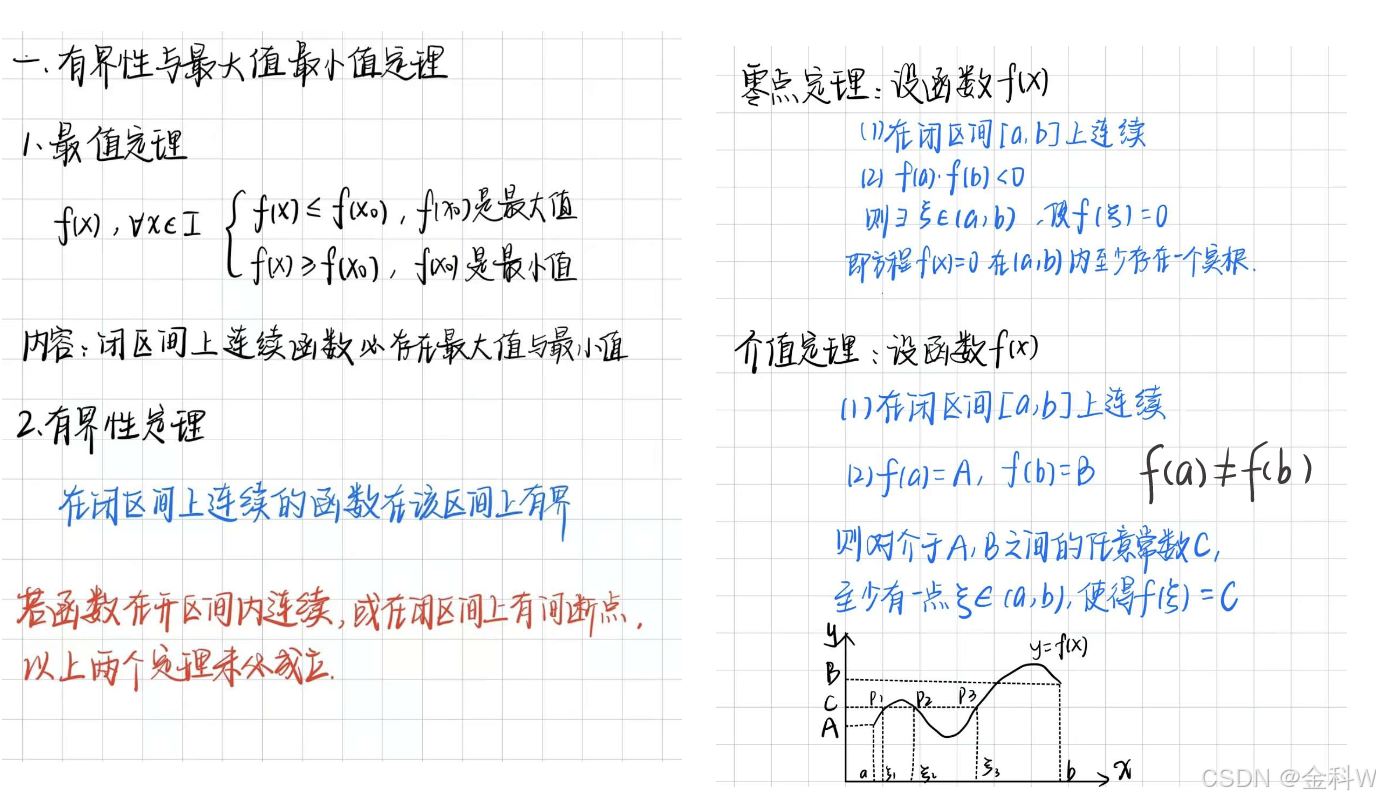 一.有界性与最大值最小值定理
1、最值定理
f(x),∀x∈I { f(x)≤f(x₀),f(x₀)是最大值
f(x)≥f(x₀),f(x₀)是最小值
内容:闭区间上连续函数必存在最大值与最小值
2.有界性定理
在闭区间上连续的函数在该区间上有界
若函数在开区间内连续,或在闭区间上有间断点,
以上两个定理未必成立.
零点定理:设函数f(x)
(1)在闭区间[a,b]上连续
(2) f(a)·f(b)<0
则∃ξ∈(a,b),使f(ξ)=0
即方程f(x)=0在(a,b)内至少存在一个实根.
介值定理:设函数f(x)
(1)在闭区间[a,b]上连续
(2)f(a)=A, f(b)=B f(a)≠f(b)
则对介于A,B之间的任意常数C,
至少有一点ξ∈(a,b),使得f(ξ)=C
y
y=f(x)
B
C P₁ P₂ P₃
A
a ξ₁ ξ₂ ξ₃ b x
CSDN @金科W